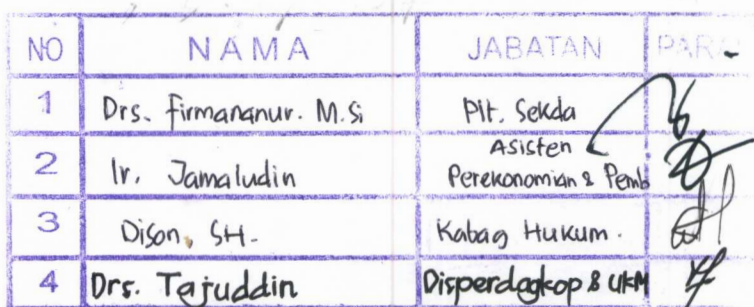 NO NAMA JABATAN PARA
1 Drs. Firmananur. M.Si Plt. Sekda
2 Ir. Jamaludin Asisten
Perekonomian & Pemb
3 Dison, SH. Kabag Hukum.
4 Drs. Tajuddin Disperdagkop & UKM